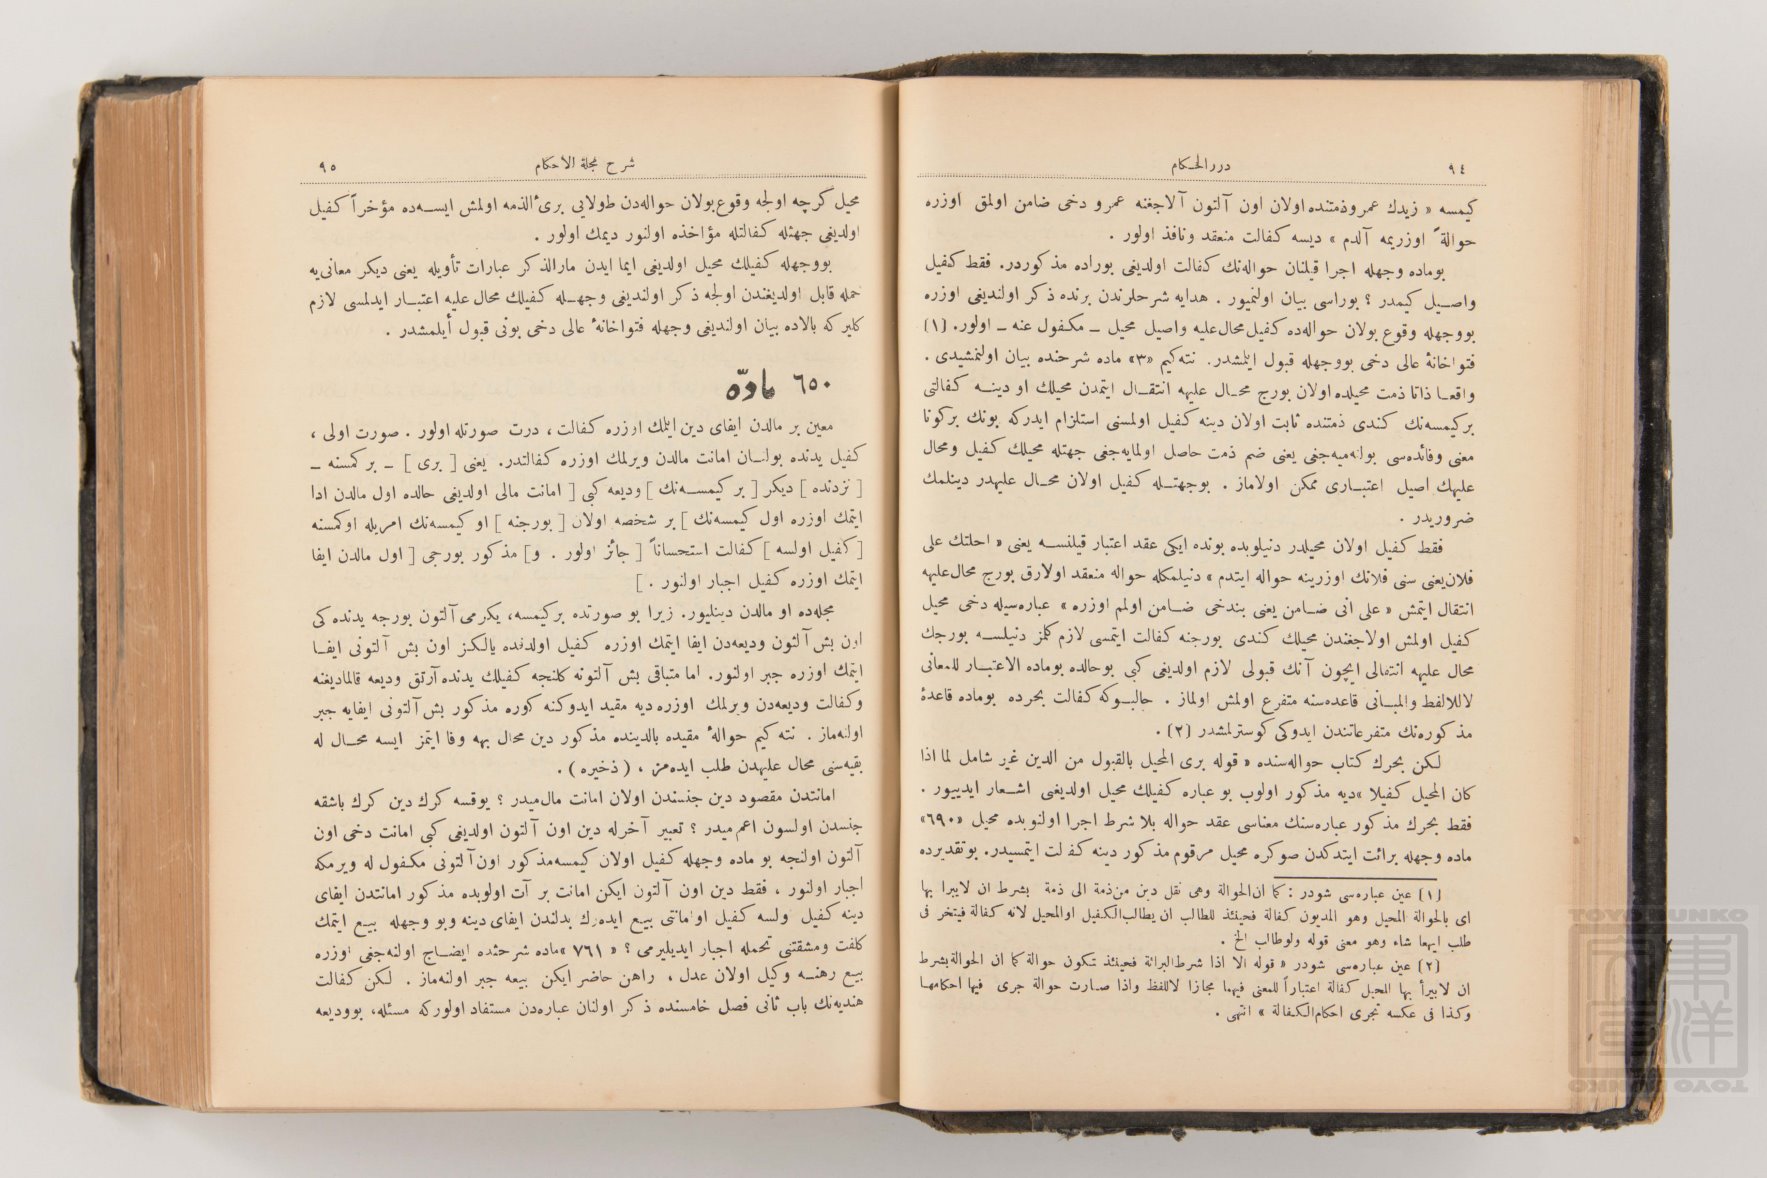 ٩٤
درر الحكام
كيمسه « زيدك عمرو ذمتنده اولان اون آلتون آلاجغنه عمرو دخی ضامن اولمق اوزره
حوالةً اوزريمه آلدم » ديسه كفالت منعقد ونافذ اولور .
بوماده وجهله اجرا قيلنان حواله‌نك كفالت اولديغی بوراده مذكوردر. فقط كفيل
واصيل كيمدر ؟ بوراسی بيان اولنميور . هدايه شرحلرندن برنده ذكر اولنديغی اوزره
بووجهله وقوع بولان حواله‌ده كفيل محال‌عليه واصيل محيل ــ مكفول عنه ــ اولور. (١)
فتواخانۀ عالی دخی بووجهله قبول ايلمشدر. نته‌كيم «٣» ماده شرحنده بيان اولنمشيدی .
واقعا ذاتا ذمت محيلده اولان بورج محال عليهه انتقال ايتمدن محيلك او دينه كفالتی
بركيمسه‌نك كندی ذمتنده ثابت اولان دينه كفيل اولمسنی استلزام ايدركه بونك بركونا
معنی وفائده‌سی بولنه‌ميه‌جغی يعنی ضم ذمت حاصل اولمايه‌جغی جهتله محيلك كفيل ومحال
عليهك اصيل اعتباری ممكن اولاماز . بوجهتله كفيل اولان محال عليهدر دينلمك
ضروريدر .
فقط كفيل اولان محيلدر دنيلوبده بونده ايكی عقد اعتبار قيلنسه يعنی « احلتك علی
فلان‌يعنی سنی فلانك اوزرينه حواله ايتدم » دنيلمكله حواله منعقد اولارق بورج محال‌عليهه
انتقال ايتمش « علی انی ضامن يعنی بندخی ضامن اولم اوزره » عباره‌سيله دخی محيل
كفيل اولمش اولاجغندن محيلك كندی بورجنه كفالت ايتمسی لازم كلمز دنيلسه بورجك
محال عليهه انتقالی ايچون آنك قبولی لازم اولديغی كبی بوحالده بوماده الاعتبار للمعانی
لاللالفظ والمبانی قاعده‌سنه متفرع اولمش اولماز . حالبوكه كفالت بحرده بوماده قاعدۀ
مذكوره‌نك متفرعاتندن ايدوكی كوسترلمشدر (٢) .
لكن بحرك كتاب حواله‌سنده « قوله بری المحيل بالقبول من الدين غير شامل لما اذا
كان المحيل كفيلا »ديه مذكور اولوب بو عباره كفيلك محيل اولديغنی اشعار ايدييور .
فقط بحرك مذكور عباره‌سنك معناسی عقد حواله بلا شرط اجرا اولنوبده محيل «٦٩٠»
ماده وجهله برائت ايتدكدن صوكره محيل مرقوم مذكور دينه كفالت ايتمسيدر. بوتقديرده
(١) عين عباره‌سی شودر : كما ان‌الحوالة وهی نقل دين من‌ذمة الی ذمة بشرط ان لايبرا بها
ای بالحوالة المحيل وهو المديون كفالة فحينئذ للطالب ان يطالب‌الكفيل اوالمحيل لانه كفالة فيتخير فی
طلب ايهما شاء وهو معنی قوله ولوطالب الخ .
(٢) عين عباره‌سی شودر « قوله الا اذا شرط‌البرائة فحينئذ تكون حوالة كما ان الحوالةبشرط
ان لايبرأ بها المحيل كفالة اعتباراً للمعنی فيهما مجازا لاللفظ واذا صارت حوالة جری فيها احكامها
وكذا فی عكسه تجری احكام‌الكفالة » انتهی .
شرح مجلة الاحكام
٩٥
محيل كرچه اولجه وقوع‌بولان حواله‌دن طولايی بریٔ‌الذمه اولمش ايسه‌ده مؤخراً كفيل
اولديغی جهتله كفالتله مؤاخذه اولنور ديمك اولور .
بووجهله كفيلك محيل اولديغی ايما ايدن مارالذكر عبارات تأويله يعنی ديكر معانی‌يه
حمله قابل اولديغندن اولجه ذكر اولنديغی وجهله كفيلك محال عليه اعتبار ايدلمسی لازم
كليركه بالاده بيان اولنديغی وجهله فتواخانۀ عالی دخی بونی قبول أيلمشدر .
٦٥٠ مادّه
معين بر مالدن ايفای دين ايلمك اوزره كفالت ، درت صورتله اولور . صورت اولی ،
كفيل يدنده بولنان امانت مالدن ويرلمك اوزره كفالتدر. يعنی [ بری ] ــ بركمسنه ــ
[ نزدنده ] ديكر [ بر كيمسه‌نك ] وديعه كبی [ امانت مالی اولديغی حالده اول مالدن ادا
ايتمك اوزره اول كيمسه‌نك ] بر شخصه اولان [ بورجنه ] او كيمسه‌نك امريله اوكمسنه
[ كفيل اولسه ] كفالت استحساناً [ جائز اولور . و] مذكور بورجی [ اول مالدن ايفا
ايتمك اوزره كفيل اجبار اولنور . ]
مجله‌ده او مالدن دينليور. زيرا بو صورتده بركيمسه، يكرمی آلتون بورجه يدنده كی
اون بش آلتون وديعه‌دن ايفا ايتمك اوزره كفيل اولدقده يالكز اون بش آلتونی ايفا
ايتمك اوزره جبر اولنور. اما متباقی بش آلتونه كلنجه كفيلك يدنده آرتق وديعه قالماديغنه
وكفالت وديعه‌دن ويرلمك اوزره ديه مقيد ايدوكنه كوره مذكور بش آلتونی ايفايه جبر
اولنه‌ماز . نته كيم حوالۀ مقيده بالدينده مذكور دين محال بهه وفا ايتمز ايسه محال له
بقيه‌سنی محال عليهدن طلب ايده‌مز ، (ذخيره) .
امانتدن مقصود دين جنسندن اولان امانت مال‌ميدر ؟ يوقسه كرك دين كرك باشقه
جنسدن اولسون اعم‌ميدر ؟ تعبير آخرله دين اون آلتون اولديغی كبی امانت دخی اون
آلتون اولنجه بو ماده وجهله كفيل اولان كيمسه‌مذكور اون‌آلتونی مكفول له ويرمكه
اجبار اولنور ، فقط دين اون آلتون ايكن امانت بر آت اولوبده مذكور امانتدن ايفای
دينه كفيل اولسه كفيل او امانتی بيع ايده‌رك بدلندن ايفای دينه وبو وجهله بيع ايتمك
كلفت ومشقتنی تحمله اجبار ايديليرمی ؟ « ٧٦١ »ماده شرحنده ايضاح اولنه‌جغی اوزره
بيع رهنه وكيل اولان عدل ، راهن حاضر ايكن بيعه جبر اولنه‌ماز . لكن كفالت
هنديه‌نك باب ثانی فصل خامسنده ذكر اولنان عباره‌دن مستفاد اولوركه مسئله، بووديعه
TOYO BUNKO
東洋文庫
TOYO BUNKO